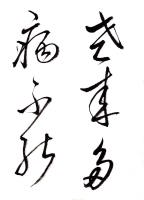 老来多
病不能